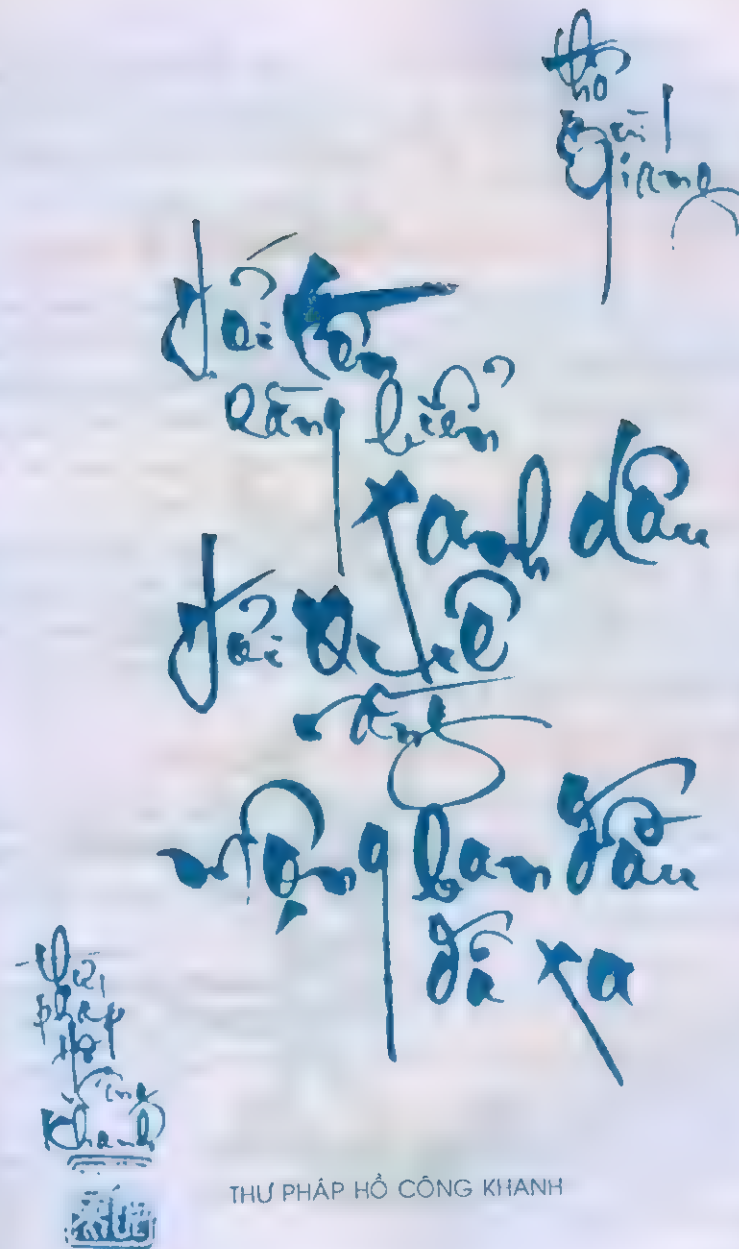 thơ
Bùi
Giáng
Hỏi tên
rằng biển
xanh dâu
Hỏi quê
rằng
mộng ban đầu
đã xa
thư
pháp
Hồ
Công
Khanh
THƯ PHÁP HỒ CÔNG KHANH